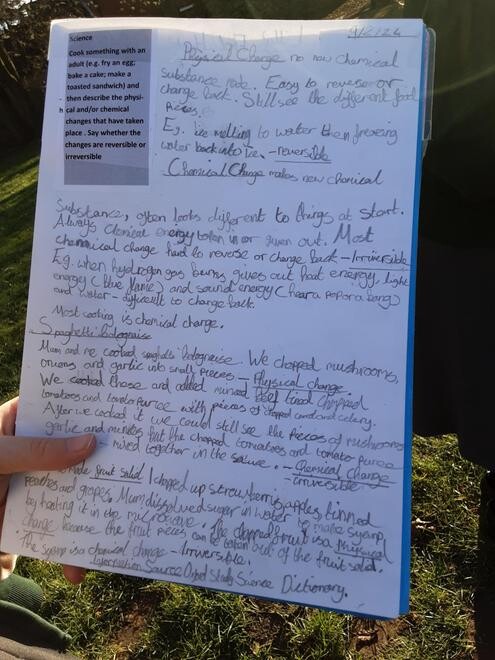 Science
Cook something with an
adult (e.g. fry an egg;
bake a cake; make a
toasted sandwich) and
then describe the physi-
cal and/or chemical
changes that have taken
place . Say whether the
changes are reversible or
irreversible
Physical Change no new chemical
substance made. Easy to reverse or
change back. Still see the different food
pieces.
Eg. ice melting to water then freezing
water back into ice. - reversible
Chemical Change makes new chemical
Substance, often looks different to things at start.
Always chemical energy taken in or given out. Most
chemical change hard to reverse or change back - Irriversible
E.g. when hydrogen gas burns gives out heat energy, light
energy (blue flame) and sound energy (hear a pop or a bang)
and water - difficult to change back.
Most cooking is chemical change.
Spaghetti bolognaise
Mum and me cooked spaghetti bolognaise. We chopped mushrooms,
onions and garlic into small pieces - Physical change
We cooked those and added minced beef tined chopped
tomatoes and tomato purree with pieces of chopped carrot and celery.
After we cooked it we could still see the pieces of mushrooms
garlic and but the chopped tomatoes and tomato purree
mixed together in the sauce. - Chemical Change
- irriversible
made fruit salad I chopped up strawberries, apples, tinned
peaches and grapes. Mum dissolved sugar in water to make syarup,
by heating it in the microwave. The chopped fruit is a Physical
change because the fruit pieces can be taken out of the fruit salad.
The syarup is a chemical change - Irriversible.
Information Source Oxford Study Science Dictionary.